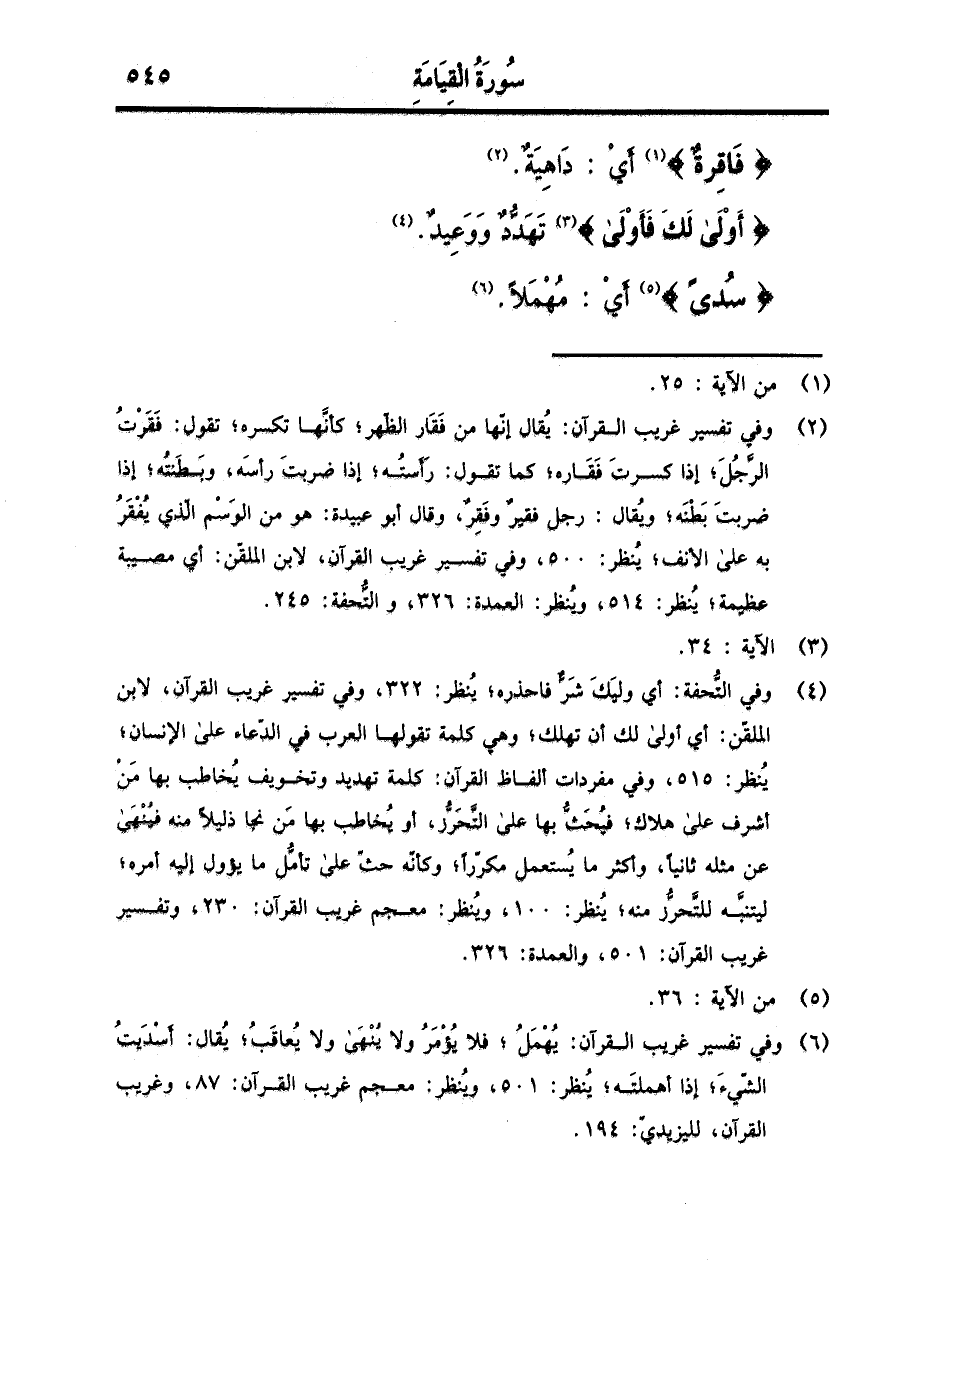 سُورَةُ الْقِيَامَةِ ٥٤٥
﴿ فَاقِرةٌ ﴾(١) أَيْ : دَاهِيَةٌ.(٢)
﴿ أَوْلَىٰ لَكَ فَأَوْلَىٰ ﴾(٣) تَهَدُّدٌ وَوَعِيدٌ.(٤)
﴿ سُدىً ﴾(٥) أَيْ : مُهْمَلاً.(٦)
(١) من الآية : ٢٥.
(٢) وفي تفسير غريب القرآن: يُقال إنّها من فَقَار الظّهر؛ كأنَّها تكسره؛ تقول: فَقَرْتُ
الرَّجُلَ؛ إذا كسرتَ فَقَاره؛ كما تقول: رأستُه؛ إذا ضربتَ رأسَه، وبَطَنتُه؛ إذا
ضربتَ بَطْنَه؛ ويُقال : رجل فقيرٌ وفَقِرٌ، وقال أبو عبيدة: هو من الوَسْم الّذي يُفْقَرُ
به علىٰ الأنف؛ يُنظر: ٥٠٠، وفي تفسير غريب القرآن، لابن الملقّن: أي مصيبة
عظيمة؛ يُنظر: ٥١٤، ويُنظر: العمدة: ٣٢٦، و التُّحفة: ٢٤٥.
(٣) الآية : ٣٤.
(٤) وفي التُّحفة: أي وليَكَ شَرٌّ فاحذره؛ يُنظر: ٣٢٢، وفي تفسير غريب القرآن، لابن
الملقّن: أي أولىٰ لك أن تهلك؛ وهي كلمة تقولها العرب في الدّعاء علىٰ الإنسان؛
يُنظر: ٥١٥، وفي مفردات ألفاظ القرآن: كلمة تهديد وتخويف يُخاطب بها مَنْ
أشرف علىٰ هلاك؛ فيُحَثُّ بها علىٰ التَّحَرُّز، أو يُخاطب بها مَن نجا ذليلاً منه فيُنْهَىٰ
عن مثله ثانياً، وأكثر ما يُستعمل مكرّراً؛ وكأنّه حثّ علىٰ تأمُّل ما يؤول إليه أمره؛
ليتنبَّه للتَّحرُّز منه؛ يُنظر: ١٠٠، ويُنظر: معجم غريب القرآن: ٢٣٠، وتفسير
غريب القرآن: ٥٠١، والعمدة: ٣٢٦.
(٥) من الآية : ٣٦.
(٦) وفي تفسير غريب القرآن: يُهْمَلُ ؛ فلا يُؤْمَرُ ولا يُنْهَىٰ ولا يُعاقَبُ؛ يُقال: أَسْدَيتُ
الشّيءَ؛ إذا أهملتَه؛ يُنظر: ٥٠١، ويُنظر: معجم غريب القرآن: ٨٧، وغريب
القرآن، لليزيديّ: ١٩٤.